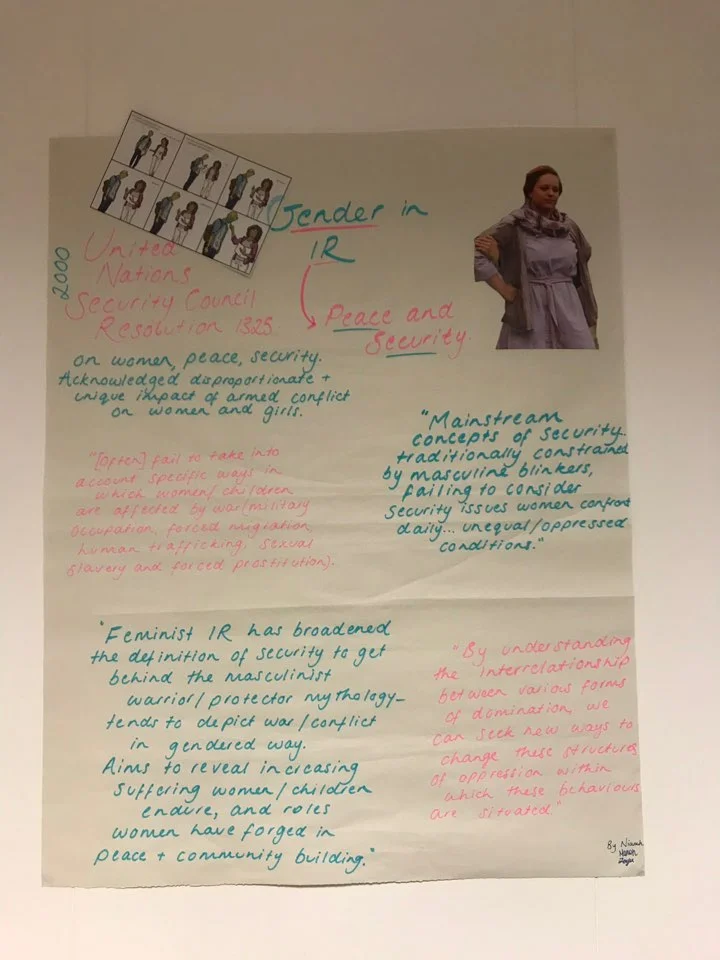 Gender in
IR
Peace and
Security.
2000
United
Nations
Security Council
Resolution 1325.
on women, peace, security.
Acknowledged disproportionate +
unique impact of armed conflict
on women and girls.
"[Often] fail to take into
account specific ways in
which women/children
are affected by war(military
occupation, forced migration,
human trafficking, sexual
slavery and forced prostitution).
"Mainstream
concepts of security..
traditionally constrained
by masculine blinkers,
failing to consider
security issues women confront
daily... unequal/oppressed
conditions."
"Feminist IR has broadened
the definition of security to get
behind the masculinist
warrior/protector mythology-
tends to depict war/conflict
in gendered way.
Aims to reveal increasing
suffering women/children
endure, and roles
women have forged in
peace + community building."
"By understanding
the interrelationship
between various forms
of domination, we
can seek new ways to
change these structures
of oppression within
which these behaviours
are situated."
By Niamh